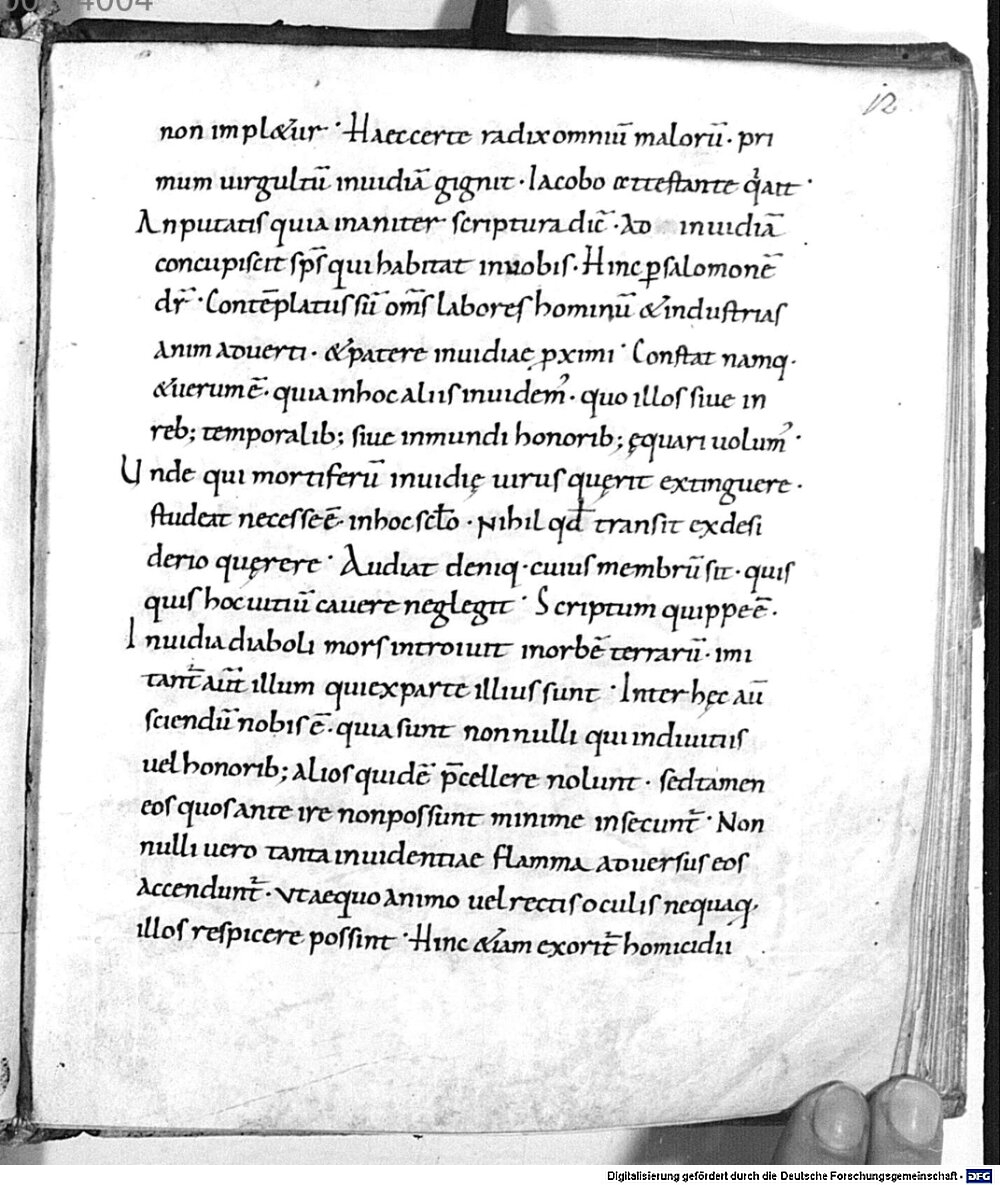 12
non impl&ur · Haec certe radix omniū malorū · pri
mum uirgultū inuidiā gignit · Iacobo attestante q̇ ait ·
An putatis quia inaniter scriptura dic̄ · Ad inuidiā
concupiscit sp̄s qui habitat in uobis · Hinc ꝑ salomonē
dr̄ · Contēplatus sū om̄s labores hominū & industrias
animaduerti · & patere inuidiae ꝓximi · Constat namq·
& uerum ē · quia in hoc aliis inuidem᾽ · quo illos siue in
reb; temporalib; siue in mundi honorib; ęquari uolum᾽ ·
Unde qui mortiferū inuidię uirus quęrit extinguere ·
studeat necesse ē · in hoc sc̄lo · Nihil qđ transit ex desi
derio quęrere · Audiat deniq· cuius membrū sit · quis
quis hoc uitiū cauere neglegit · Scriptum quippe ē ·
Inuidia diaboli mors introiuit in orbē terrarū · imi
tant̄ aūt illum qui ex parte illius sunt · Inter hęc aū
sciendū nobis ē · quia sunt non nulli qui in diuitiis
uel honorib; alios quidē p̄cellere nolunt · sed tamen
eos quos ante ire non possunt minime insecunt̄ · Non
nulli uero tanta inuidentiae flamma aduersus eos
accendunt̄ · ut aequo animo uel rectis oculis nequaq̨·
illos respicere possint · Hinc &iam exorit̄ homicidii
Digitalisierung gefördert durch die Deutsche Forschungsgemeinschaft - DFG